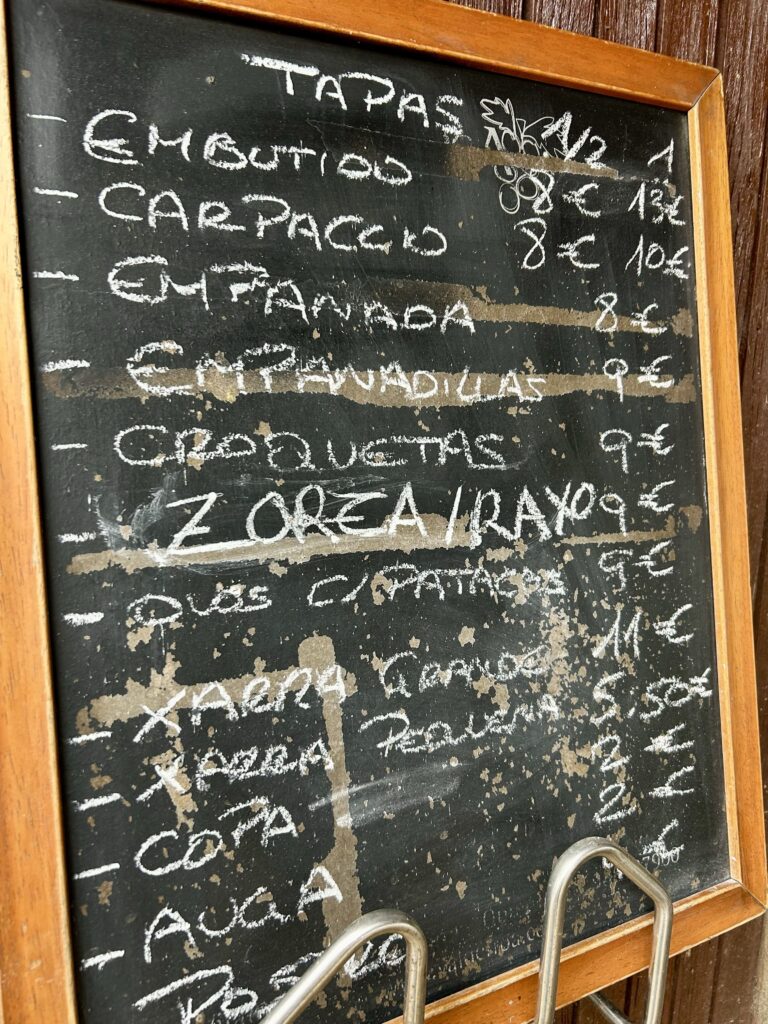 TAPAS 1/2 1
- EMBUTIDO 8€ 13€
- CARPACCIO 8€ 10€
- EMPANADA 8€
- EMPANADILLAS 9€
- CROQUETAS 9€
- ZORZA/RAXO 9€
- OVOS C/ PATACAS 9€
- XARRA GRANDE 11€
- XARRA PEQUENA 5,50€
- COPA 2€
- AUGA 2€
€